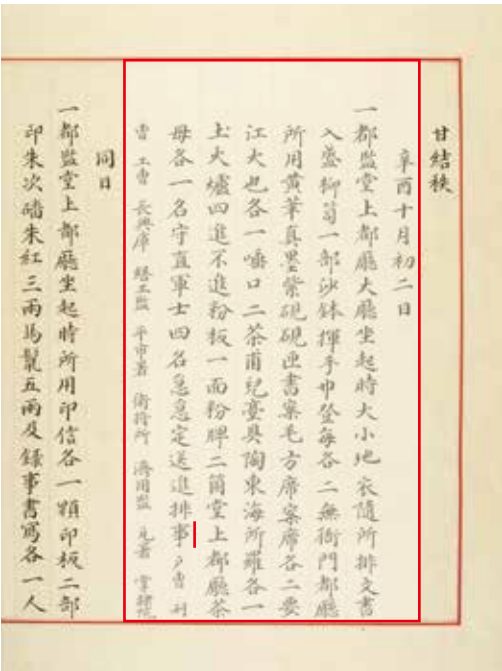 甘結秩
辛酉十月初二日
一都監堂上都廳大廳坐起時大小地衣隨所排文書
入盛柳笥一部沙鉢揮手巾登每各二無衙門都廳
所用黃筆真墨紫硯硯匣書案毛方席案席各二要
江大也各一唾口二茶甫兒臺具陶東海所羅各一
土火爐四進不進粉板一面粉牌二箇堂上都廳茶
母各一名守直軍士四名急急定送進排事 戶曹 刑
曹 工曹 長興庫 繕工監 平市署 衛將所 濟用監 瓦署 掌隷院
同日
一都監堂上都廳坐起時所用印信各一顆印板二部
印朱次磻朱紅三兩馬鬣五兩及錄事書寫各一人